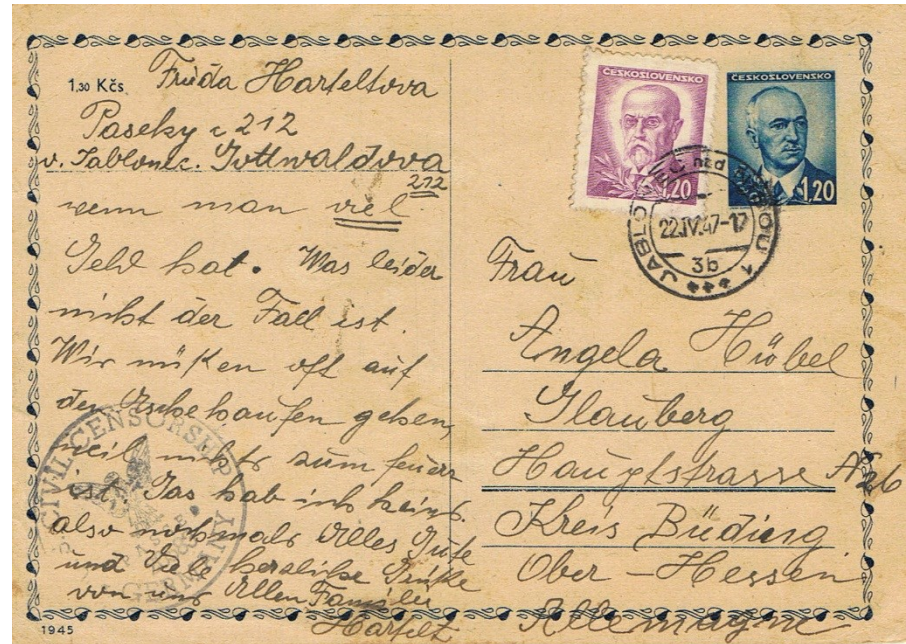 1.30 Kčs
Frieda Harteltova
Paseky č 212
v. Jablonec. Gottwaldova
212
wenn man viel
Geld hat. Was leider
nicht der Fall ist.
Wir müßen oft auf
den Aschehaufen gehen,
weil nichts zum feuern
ist. Gas hab ich keins.
also nochmals Alles Gute
und Viele herzliche Grüße
von uns Allen Familie
Hartelt
1945
CIVIL CENSORSHIP
GERMANY
ČESKOSLOVENSKO
1.20
ČESKOSLOVENSKO
1.20
JABLONEC nad NISOU 1
22.IV.47-17
3b
Frau
Angela Hübel
Glauberg
Hauptstrasse
Kreis Büding
Ober - Hessen
Allemagne